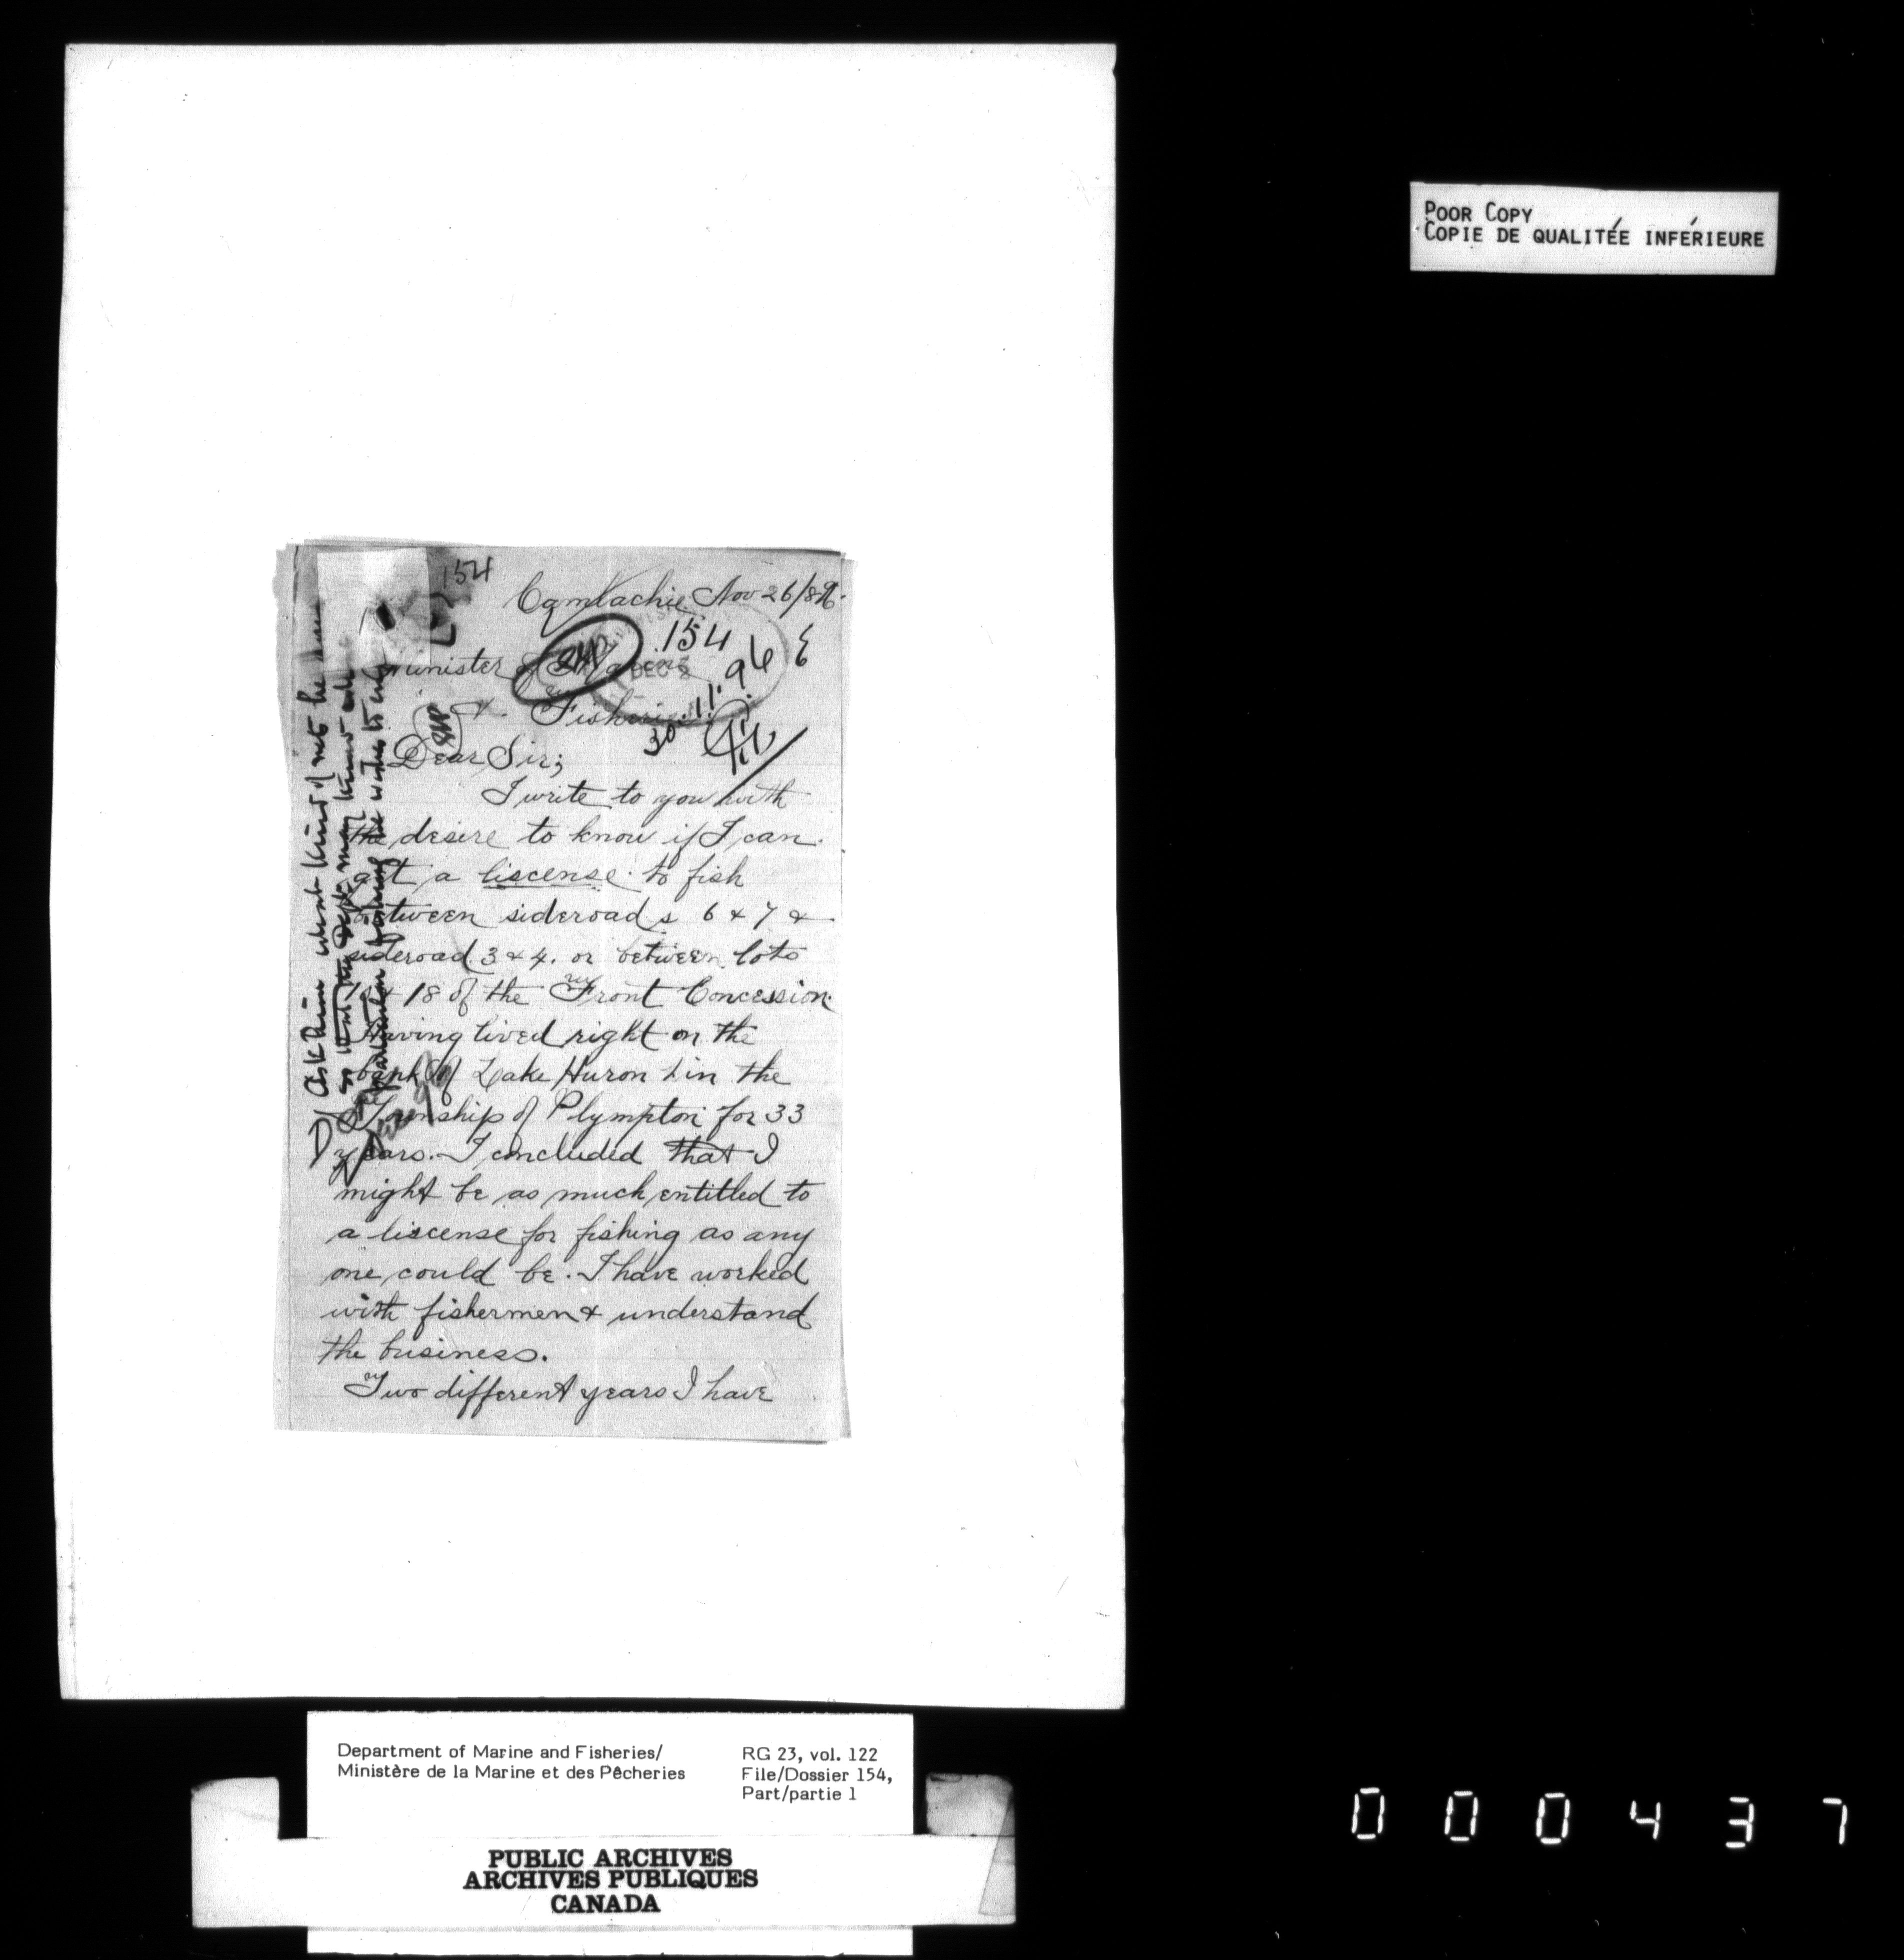 POOR COPY
COPIE DE QUALITÉE INFÉRIEURE
154
Camlachie Nov 26/896.
154
Minister of Marine
DEC 2
30.11.96
& Fisheries
Dear Sir;
I write to you with
the desire to know if I can
get a liscense to fish
between sideroads 6 & 7 &
sideroad 3 & 4. or between lots
& 18 of the Front Concession.
Having lived right on the
bank of Lake Huron & in the
Township of Plympton for 33
years. I concluded that I
might be as much entitled to
a liscense for fishing as any
one could be. I have worked
with fishermen & understand
the business.
Two different years I have
Ask him what kind of net he
so that the Dept. may know
particular fishing he wishes to
Department of Marine and Fisheries/
Ministère de la Marine et des Pêcheries
RG 23, vol. 122
File/Dossier 154,
Part/partie 1
PUBLIC ARCHIVES
ARCHIVES PUBLIQUES
CANADA
000437